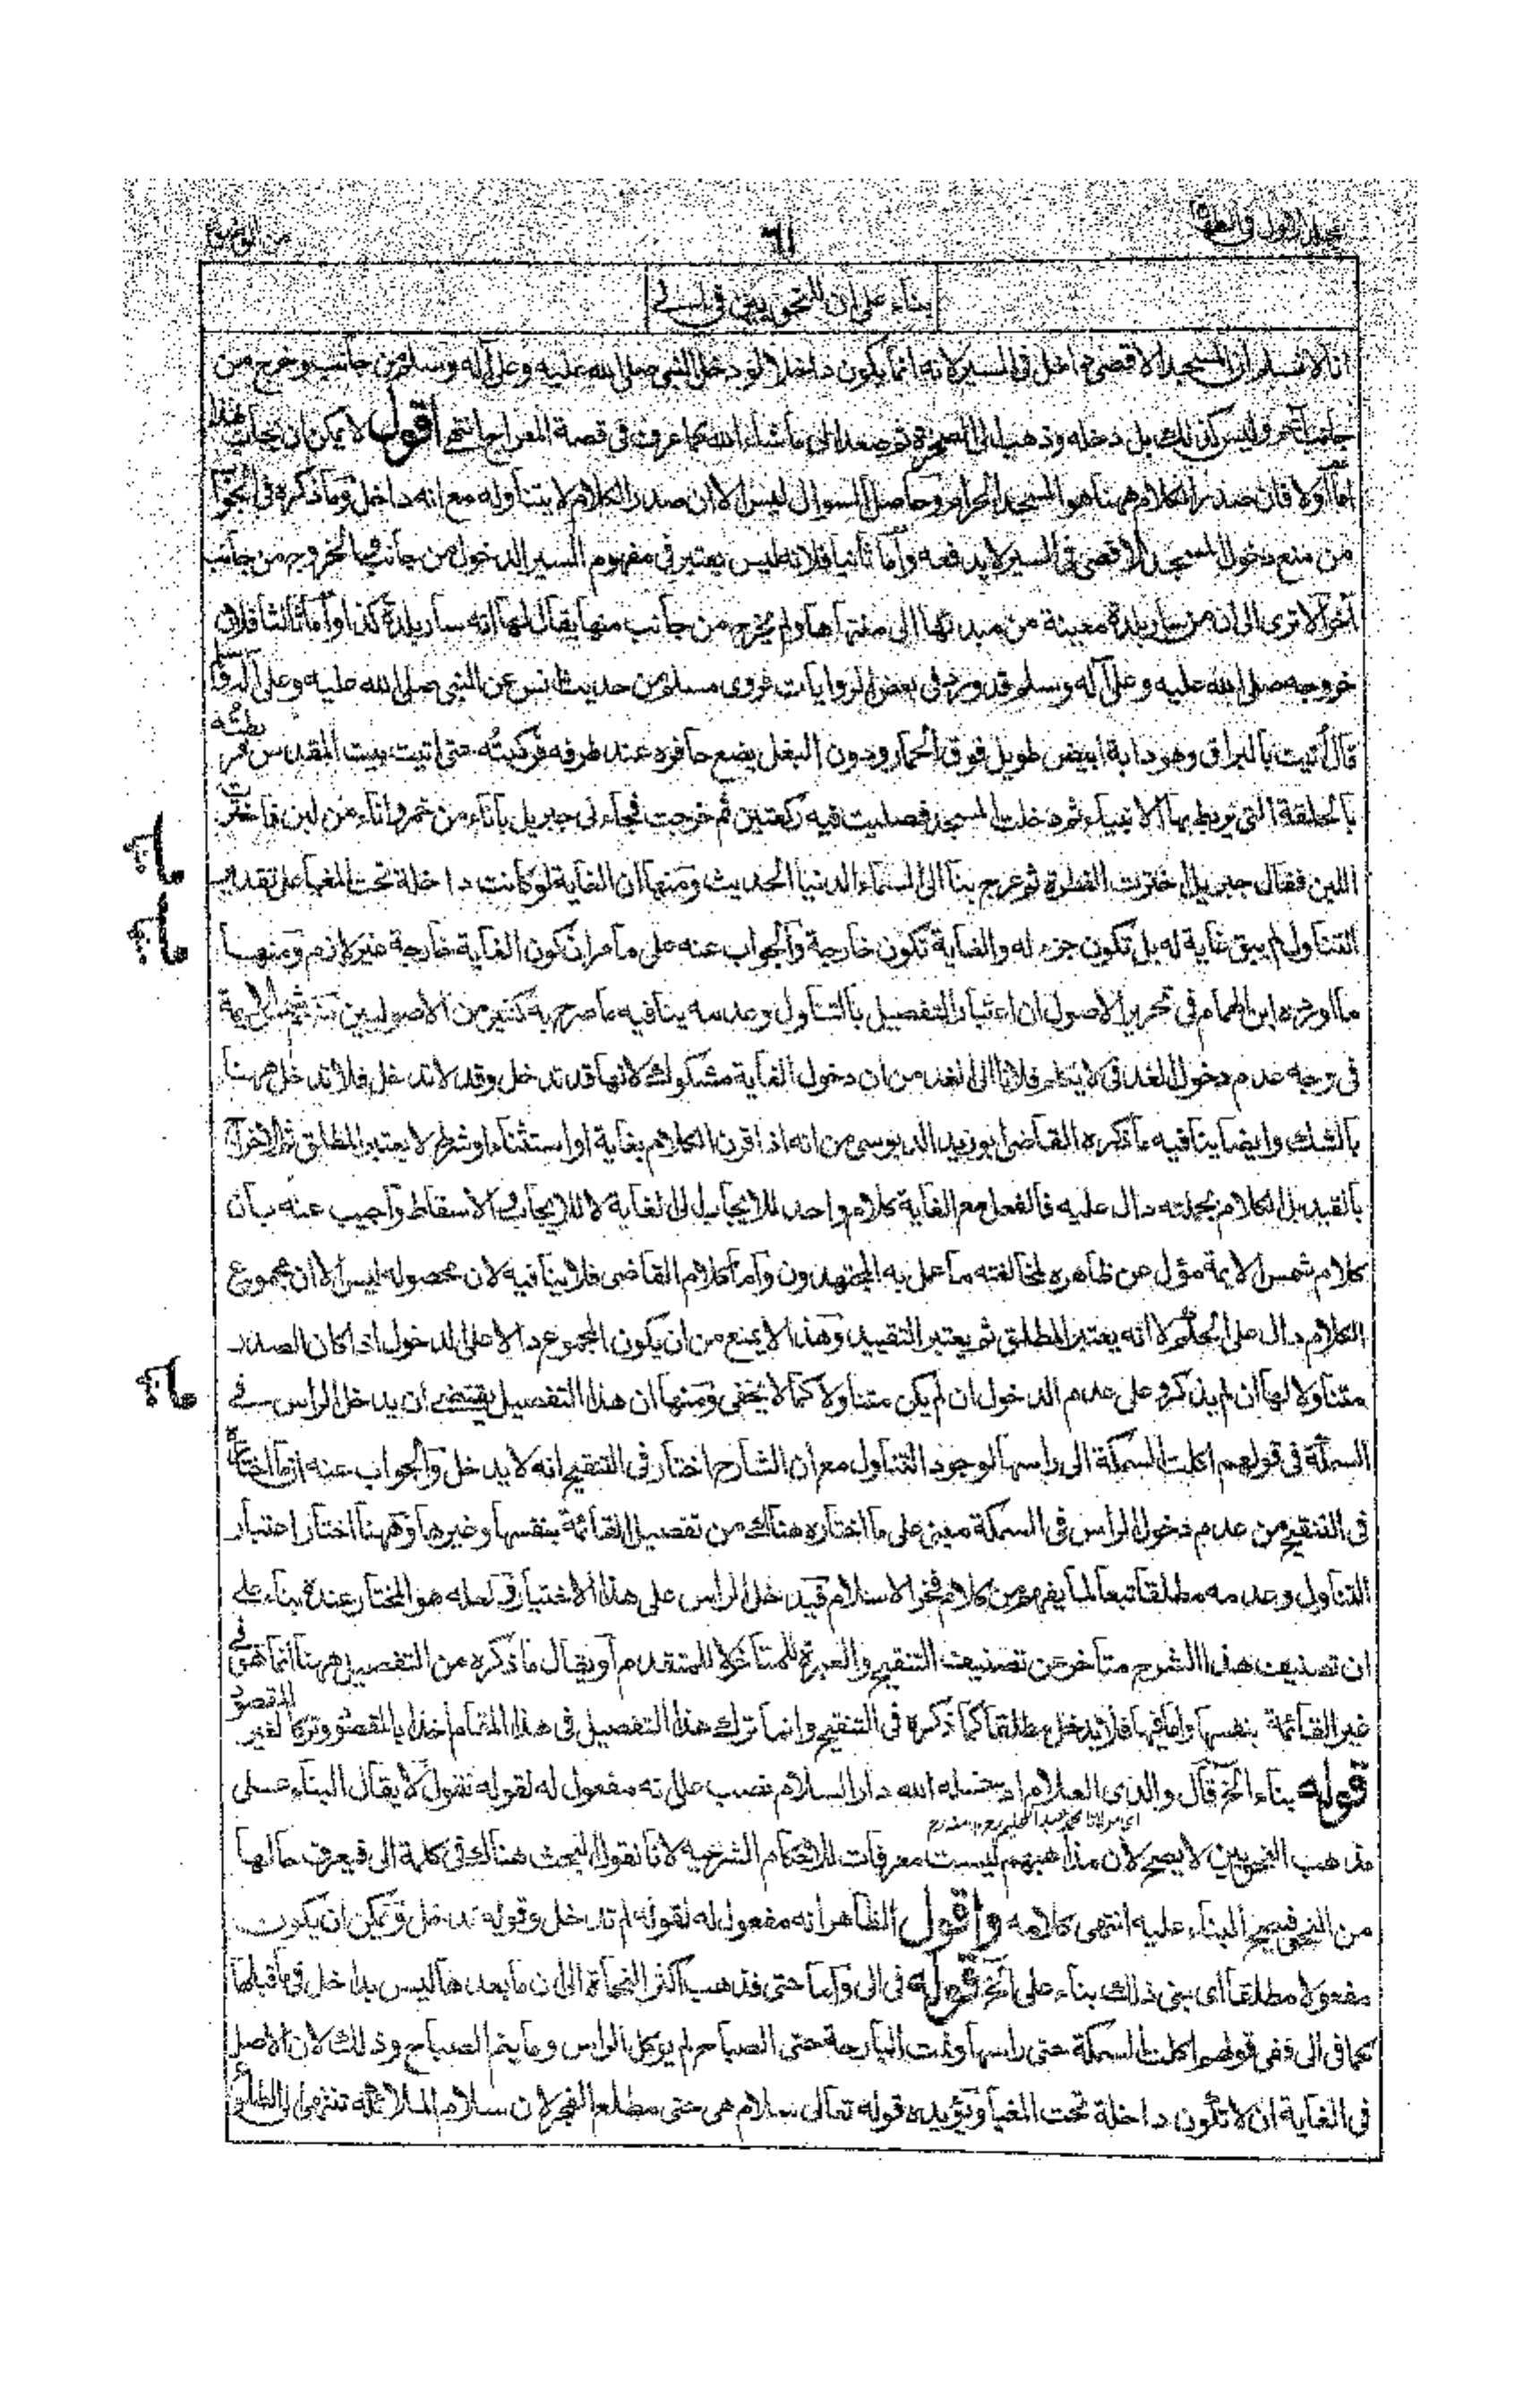 ٦١
بناء على ان للنحويين في الى
انا لا نسلم ان المسجد الاقصى داخل في السير لانه انما يكون داخلا لو دخل النبي صلى الله عليه وعلى آله وسلم من جانب وخرج من
جانب آخر وليس كذلك بل دخله وذهب الى الصخرة ثم صعد الى ما شاء الله كما عرف في قصة المعراج انتهى اقول لا يمكن ان يجاب هذا
اما اولا فان صدر الكلام ههنا هو المسجد الحرام وحاصل السوال ليس الا ان صدر الكلام لا يتناوله مع انه داخل وما ذكره في الجواب
من منع دخول المسجد الاقصى في السير لا يدفعه واما ثانيا فلانه ليس يعتبر في مفهوم السير الدخول من جانب والخروج من جانب
آخر الا ترى الى ان من سار بلدة معينة من مبدئها الى منتهاها ولم يخرج من جانب منها يقال لها انه سار بلدة كذا واما ثالثا فلان
خروجه صلى الله عليه وعلى آله وسلم قد ورد في بعض الروايات فروى مسلم من حديث انس عن النبي صلى الله عليه وعلى آله وسلم
قال اتيت بالبراق وهو دابة ابيض طويل فوق الحمار ودون البغل يضع حافره عند طرفه فركبته حتى اتيت بيت المقدس فربطته
بالحلقة التي يربط بها الانبياء ثم دخلت المسجد فصليت فيه ركعتين ثم خرجت فجاءني جبريل باناء من خمر واناء من لبن فاخترت
اللبن فقال جبريل اخترت الفطرة ثم عرج بنا الى السماء الدنيا الحديث ومنها ان الغاية لو كانت داخلة تحت المغيا على تقدير
التناول لم يبق غاية له بل تكون جزء له والغاية تكون خارجة والجواب عنه على ما مر ان كون الغاية خارجة غير لازم ومنها
ما اورده ابن الهمام في تحرير الاصول ان اعتبار التفصيل بالتناول وعدمه ينافيه ما صرح به كثير من الاصوليين شمس الايمة
في وجه عدم دخول الغد في لا يكلم فلانا الى الغد من ان دخول الغاية مشكوك لانها قد تدخل وقد لا تدخل فلا تدخل ههنا
بالشك وايضا ينافيه ما ذكره القاضي ابو زيد الدبوسي من انه اذا قرن الكلام بغاية او استثناء او شرط لا يعتبر المطلق ثم الاخراج
بالقيد بل الكلام بجملته دال عليه فالفعل مع الغاية كلام واحد للايجاب الى الغاية لا للايجاب والاسقاط واجيب عنه بان
كلام شمس الايمة مؤل عن ظاهره لمخالفته ما عمل به المجتهدون واما كلام القاضي فلا ينافيه لان محصوله ليس الا ان مجموع
الكلام دال على الحكم لا انه يعتبر المطلق ثم يعتبر التقييد وهذا لا يمنع من ان يكون المجموع دالا على الدخول اذا كان الصدر
متناولا لها ان لم يذكر و على عدم الدخول ان لم يكن متناولا كما لا يخفى ومنها ان هذا التفصيل يقتضى ان يدخل الراس في
السمكة في قولهم اكلت السمكة الى راسها لوجود التناول مع ان الشارح اختار في التنقيح انه لا يدخل والجواب عنه ان ما اختاره
في التنقيح من عدم دخول الراس في السمكة مبني على ما اختاره هناك من تفصيل القائمة بنفسها وغيرها وههنا اختار اعتبار
التناول وعدمه مطلقا تبعا لما يفهم من كلام فخر الاسلام فيدخل الراس على هذا الاختيار ولعله هو المختار عنده بناء على
ان تصنيف هذا الشرح متاخر عن تصنيف التنقيح والعبرة للمتاخر لا للمتقدم او يقال ما ذكره من التفصيل ههنا انما هو في
غير القائمة بنفسها واما فيها فلا يدخل مطلقا كما ذكره في التنقيح وانما ترك هذا التفصيل في هذا المقام اخذا بالمقصود وتركا لغير المقصود
قوله بناء الخ قال والدي العلام ادخله الله دار السلام نصب على انه مفعول له لقوله نقول لا يقال البناء على
اى مولانا محمد عبد الحليم
مذهب النحويين لا يصح لان مذاهبهم ليست معرفات للاحكام الشرعية لانا نقول البحث هناك في كلمة الى فيعرف حالها
من النحو فيصح البناء عليه انتهى كلامه واقول الظاهر انه مفعول له لقوله لم تدخل وقوله تدخل ويمكن ان يكون
مفعولا مطلقا اى بنى ذلك بناء على الخ قوله في الى واما حتى فذهب اكثر النحاة الى ان ما بعدها ليس بداخل في ما قبلها
كما في الى ففي قولهم اكلت السمكة حتى راسها ونمت البارحة حتى الصباح لم يوكل الراس وما ينم الصباح وذلك لان الاصل
في الغاية ان لا تكون داخلة تحت المغيا ويؤيده قوله تعالى سلام هي حتى مطلع الفجر لان سلام الملائكة تنتهى الى